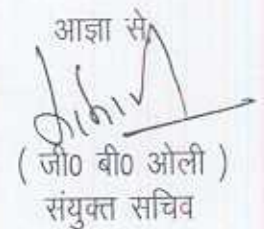 आज्ञा से
( जी0 बी0 ओली )
संयुक्त सचिव